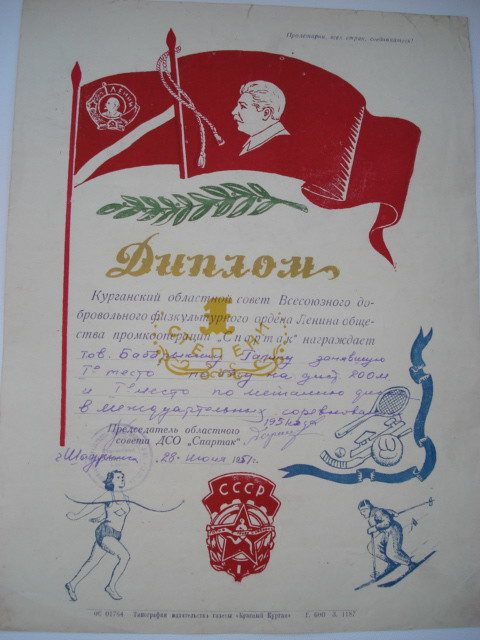 Пролетарии, всех стран, соединяйтесь!
ЛЕНИН
Диплом
I
СТЕПЕНИ
Курганский областной совет Всесоюзного до-
бровольного физкультурного ордена Ленина обще-
ства промкооперации „Спартак" награждает
тов. Галину занявшую
I место по бегу на дист. 200м.
и I место по метанию
в междуартельных соревнован
195
Председатель областного
совета ДСО „Спартак"
г. Шадринск 28 июня 1951г.
СССР
ОС 01764 Типография издательства газеты «Красный Курган» Т. 600 З. 1187